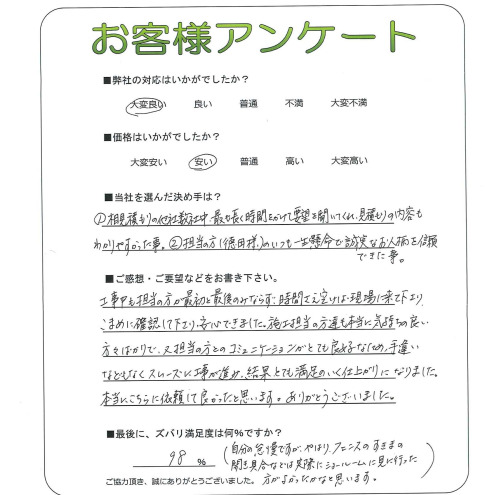 お客様アンケート
■弊社の対応はいかがでしたか？
大変良い 良い 普通 不満 大変不満
■価格はいかがでしたか？
大変安い 安い 普通 高い 大変高い
■当社を選んだ決め手は？
①相見積もりの他社数社中、最も長く時間をかけて要望を聞いてくれ、見積もりの内容も
わかりやすかった事。②担当の方(徳田様)のいつも一生懸命で誠実なお人柄を信頼
できた事。
■ご感想・ご要望などをお書き下さい。
工事中も担当の方が最初と最後のみならず、時間さえ空けば現場に来て下さり
こまめに確認して下さり、安心できました。施工担当の方達も本当に気持ちの良い
方々ばかりで、又担当の方とのコミュニケーションがとても良好なため、手違い
などもなくスムーズに工事が進み、結果とても満足のいく仕上がりになりました。
本当にこちらに依頼して良かったと思います。ありがとうございました。
■最後に、ズバリ満足度は何%ですか？
98 %
(自分の怠慢ですが、やはり、フェンスのすきまの
開き具合などは実際にショールームに見に行った
方がよかったかなと思います。)
ご協力頂き、誠にありがとうございました。